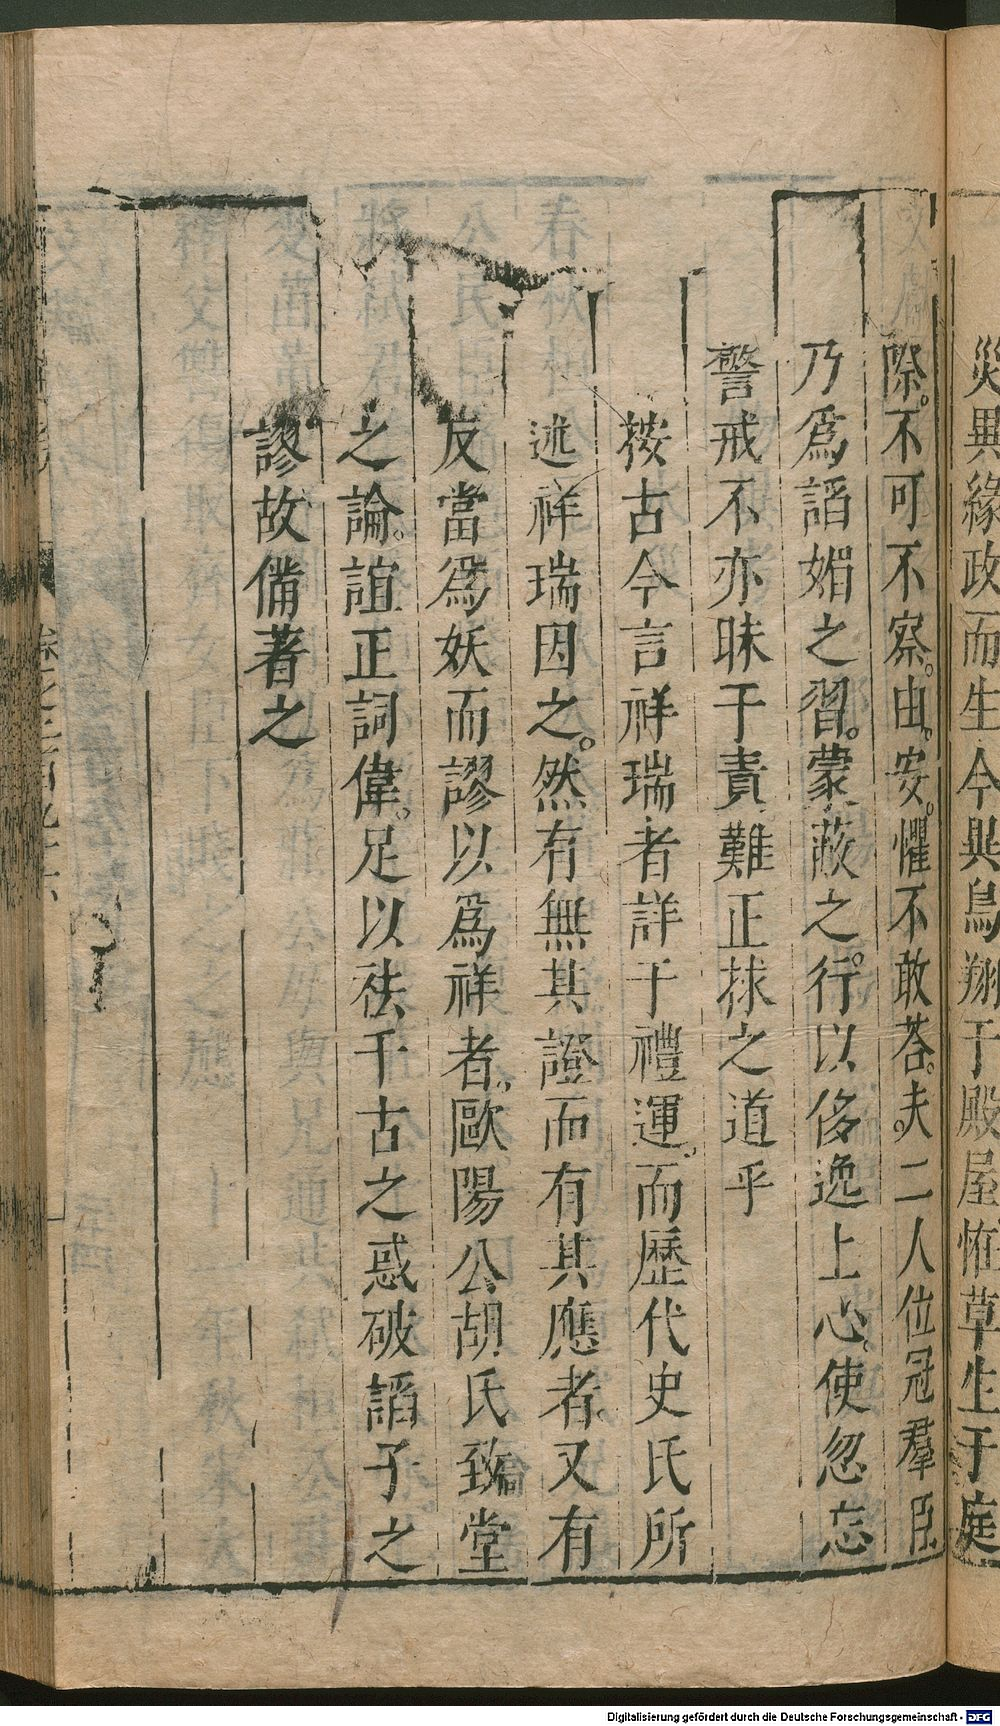 災異緣政而生今異鳥翔于殿屋恠草生于庭
際。不可不察。由。安。懼不敢荅。夫。二人位冠羣臣
乃爲謟媚之習。蒙蔽之。行以侈逸上心。使忽忘
警戒不亦昧于責難正捄之道乎
按古今言祥瑞者詳于禮運。而歷代史氏所
述祥瑞因之。然有無其證而有其應者又有
反當爲妖而謬以爲祥者。歐陽公胡氏致堂
之論。誼正詞偉。足以祛千古之惑破謟子之
謬故備著之
Digitalisierung gefördert durch die Deutsche Forschungsgemeinschaft - DFG